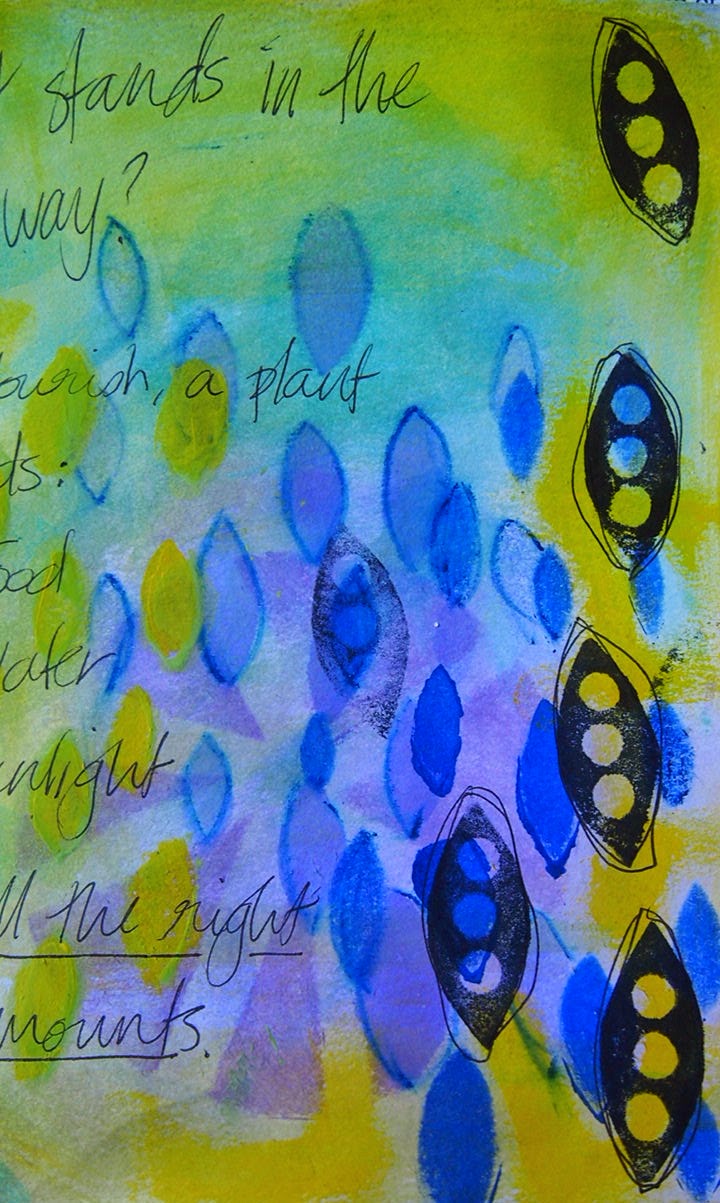 stands in the
way?
ourish, a plant
ds:
ood
ater
nlight
ll the right
mounts.